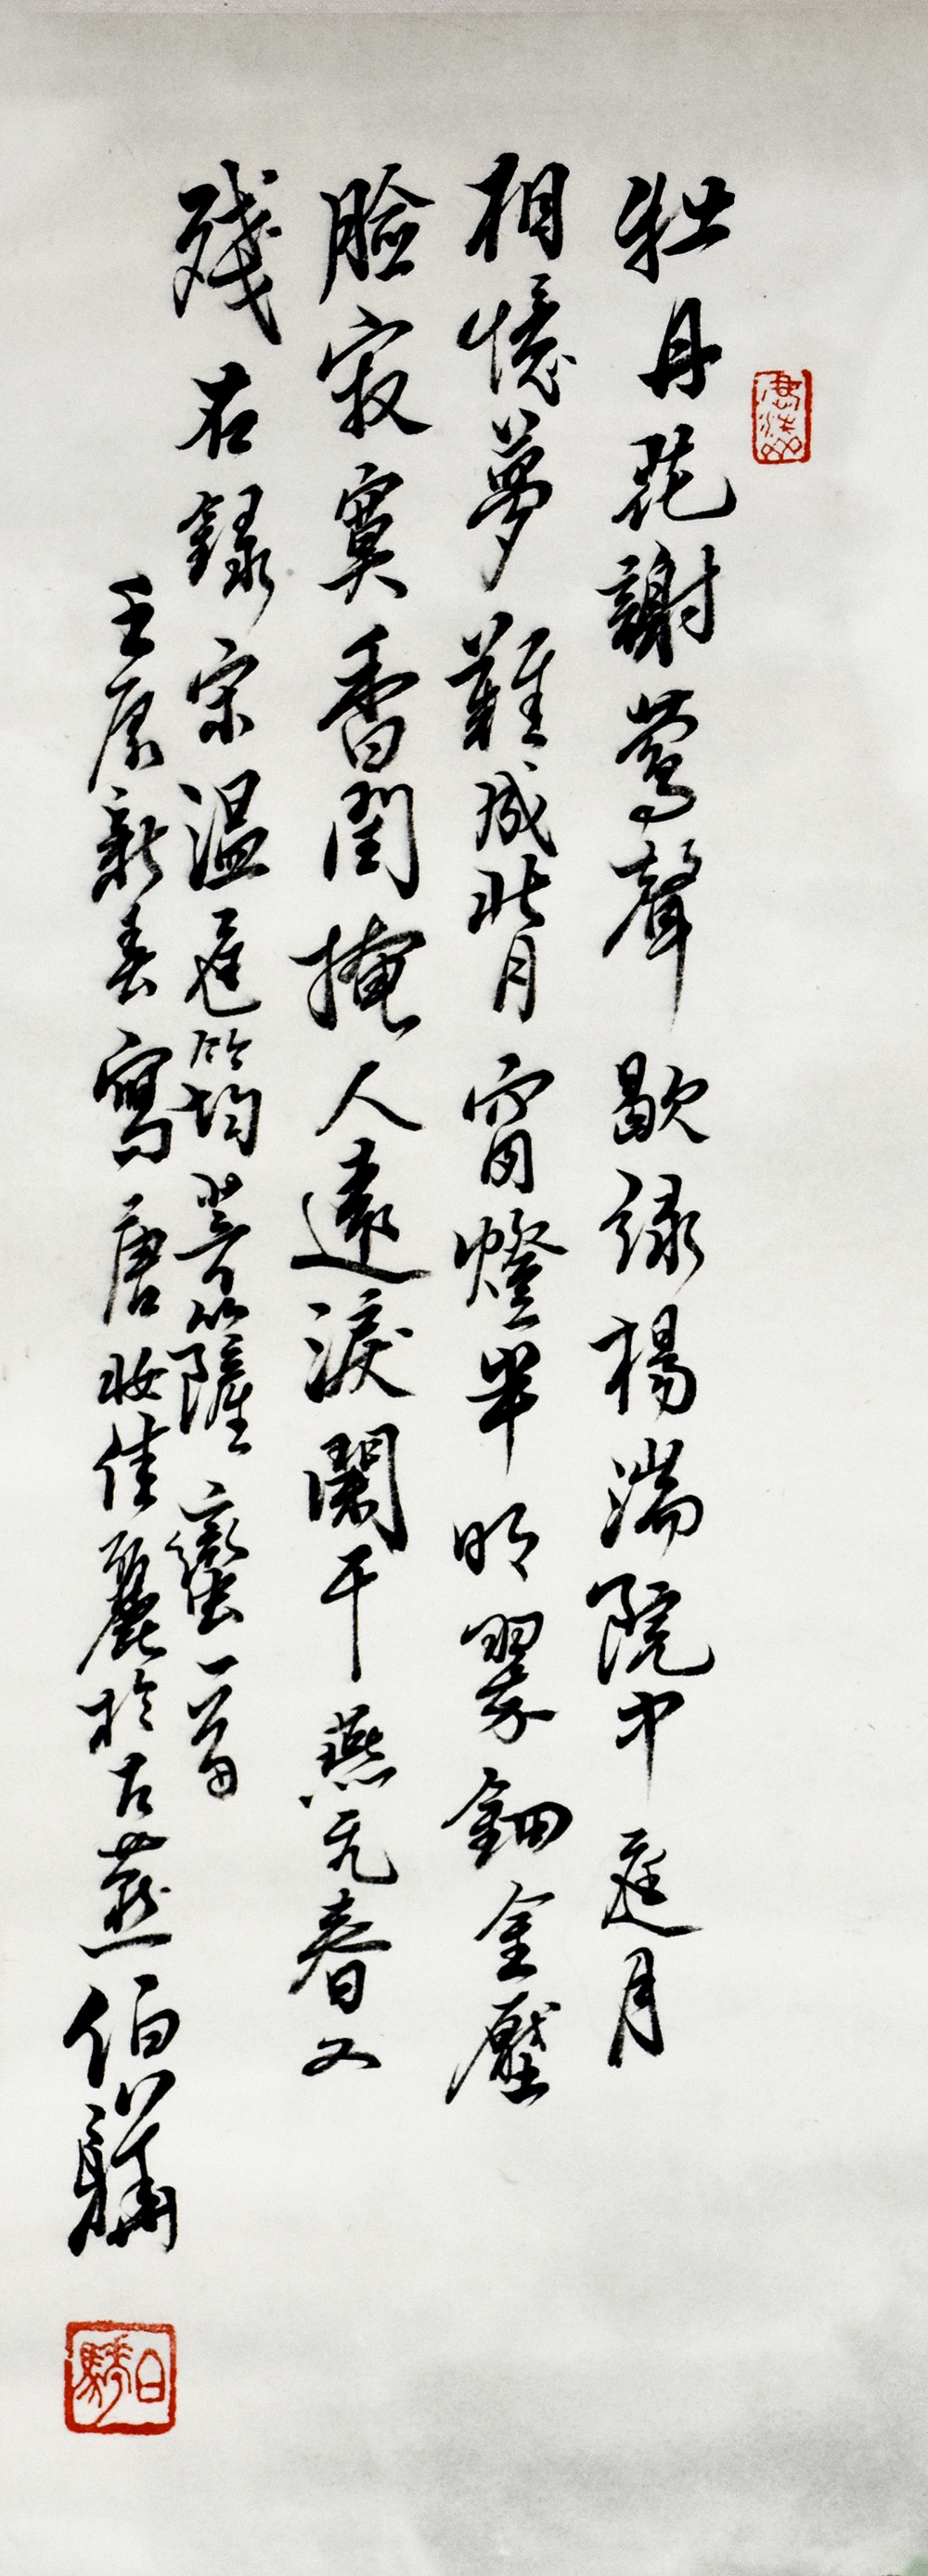 牡丹花謝鶯聲歇綠楊滿院中庭月
相憶夢難成背月窗燈半明翠鈿金壓
臉寂寞香閨掩人遠淚闌干燕飛春又
殘右錄宋溫庭筠菩薩蠻一首
新春寫唐妝佳麗於古燕伯驕